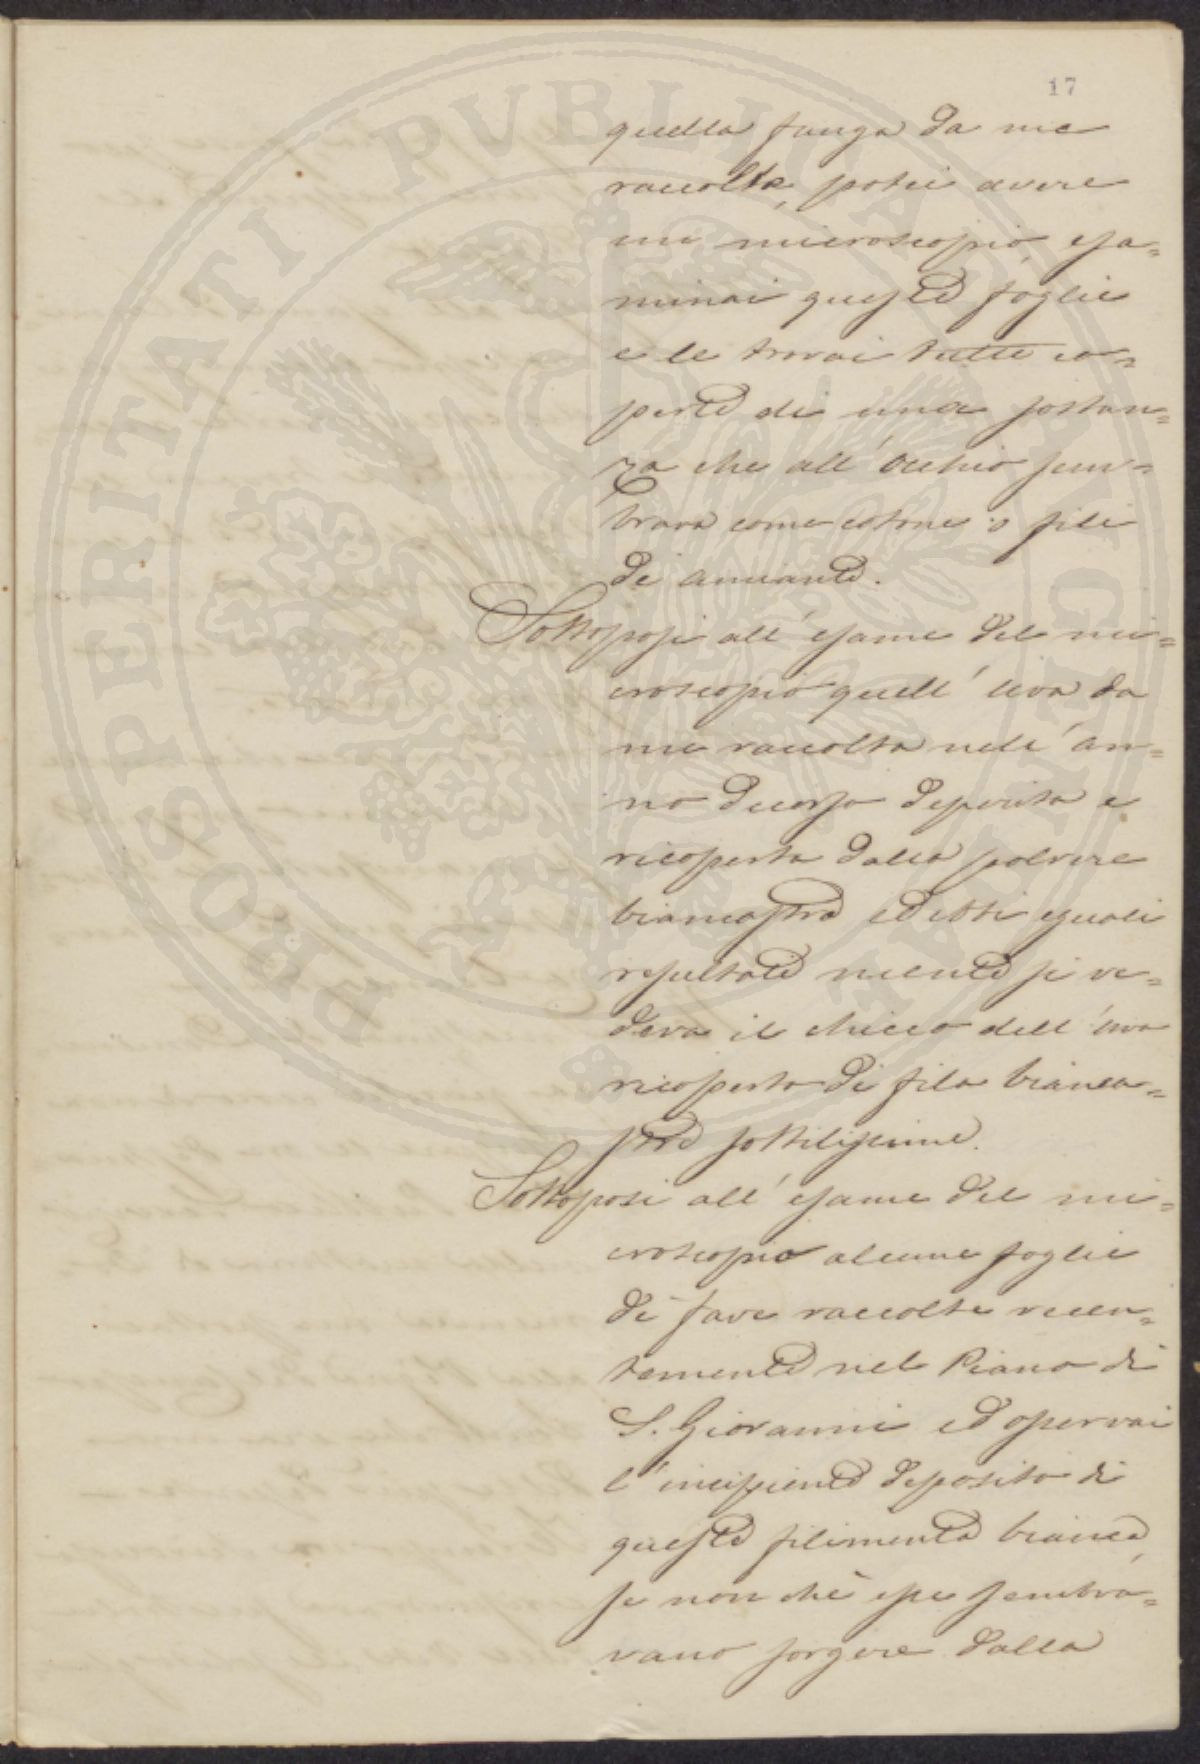 17
quella funga da me
raccolta, potei avere
un microscopio, esa=
minai queste foglie
e le trovai tutte co=
perte di una sostan=
za che all'occhio sem=
brava come cotone o fili
di amianto.
Sottoposi all'esame del mi=
croscopio quell'uva da
me raccolta nell'an=
no decorso deperita e
ricoperta dalla polvere
biancastra ed ebbi eguali
resultati mentre si ve=
deva il chicco dell'uva
ricoperto di fila bianca=
stre sottilissime.
Sottoposi all'esame del mi=
croscopio alcune foglie
di fave raccolte recen=
temente nel Piano di
S. Giovanni ed osservai
l'incipiente deposito di
queste filimenta bianca
se non chè esse sembra=
vano sorgere dalla
PROSPERITATI PVBLICAE AVGENDAE